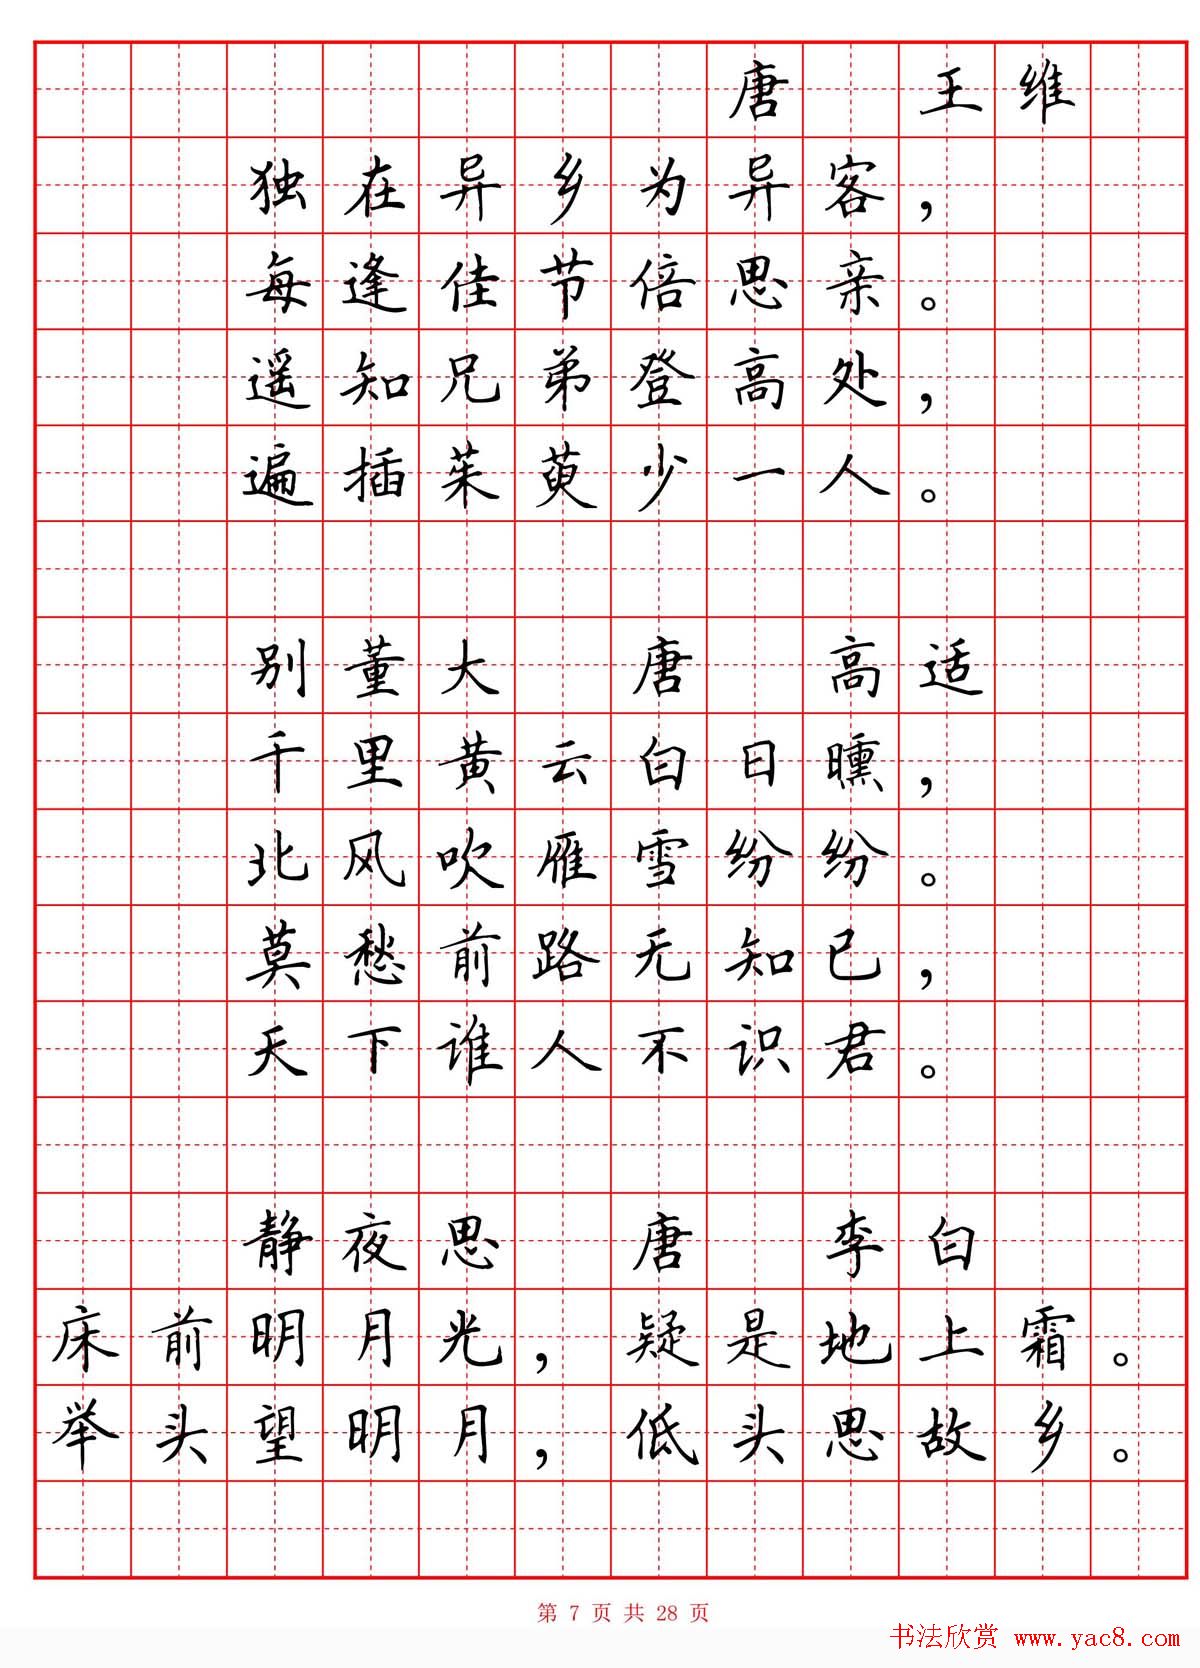 唐 王维
独在异乡为异客，
每逢佳节倍思亲。
遥知兄弟登高处，
遍插茱萸少一人。
别董大 唐 高适
千里黄云白日曛，
北风吹雁雪纷纷。
莫愁前路无知已，
天下谁人不识君。
静夜思 唐 李白
床前明月光，疑是地上霜。
举头望明月，低头思故乡。
第 7 页 共 28 页
书法欣赏 www.yac8.com